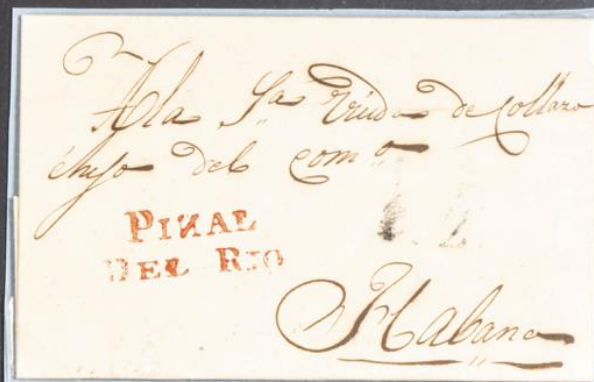 A la Sra Viuda de Collazo
é hijo del comº
PINAL
DEL RIO
Habana